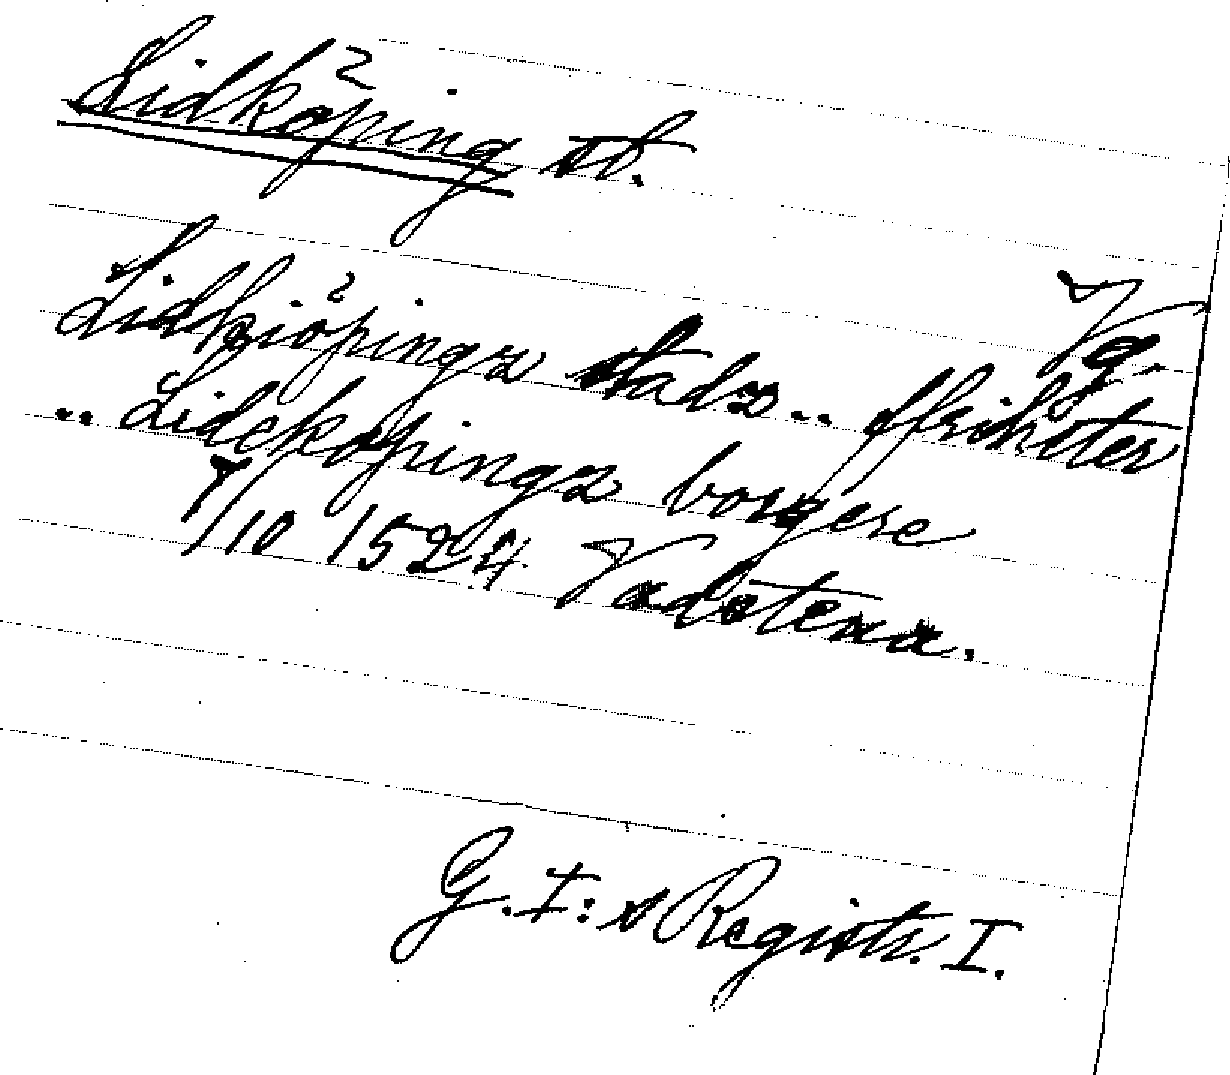 Lidköping st.
Vg.
Lidkiöpingz stadz.. ffriheter
.. Lidekøpingz borgere
7/10 1524 Vadstena.
G. I:s Registr. I.